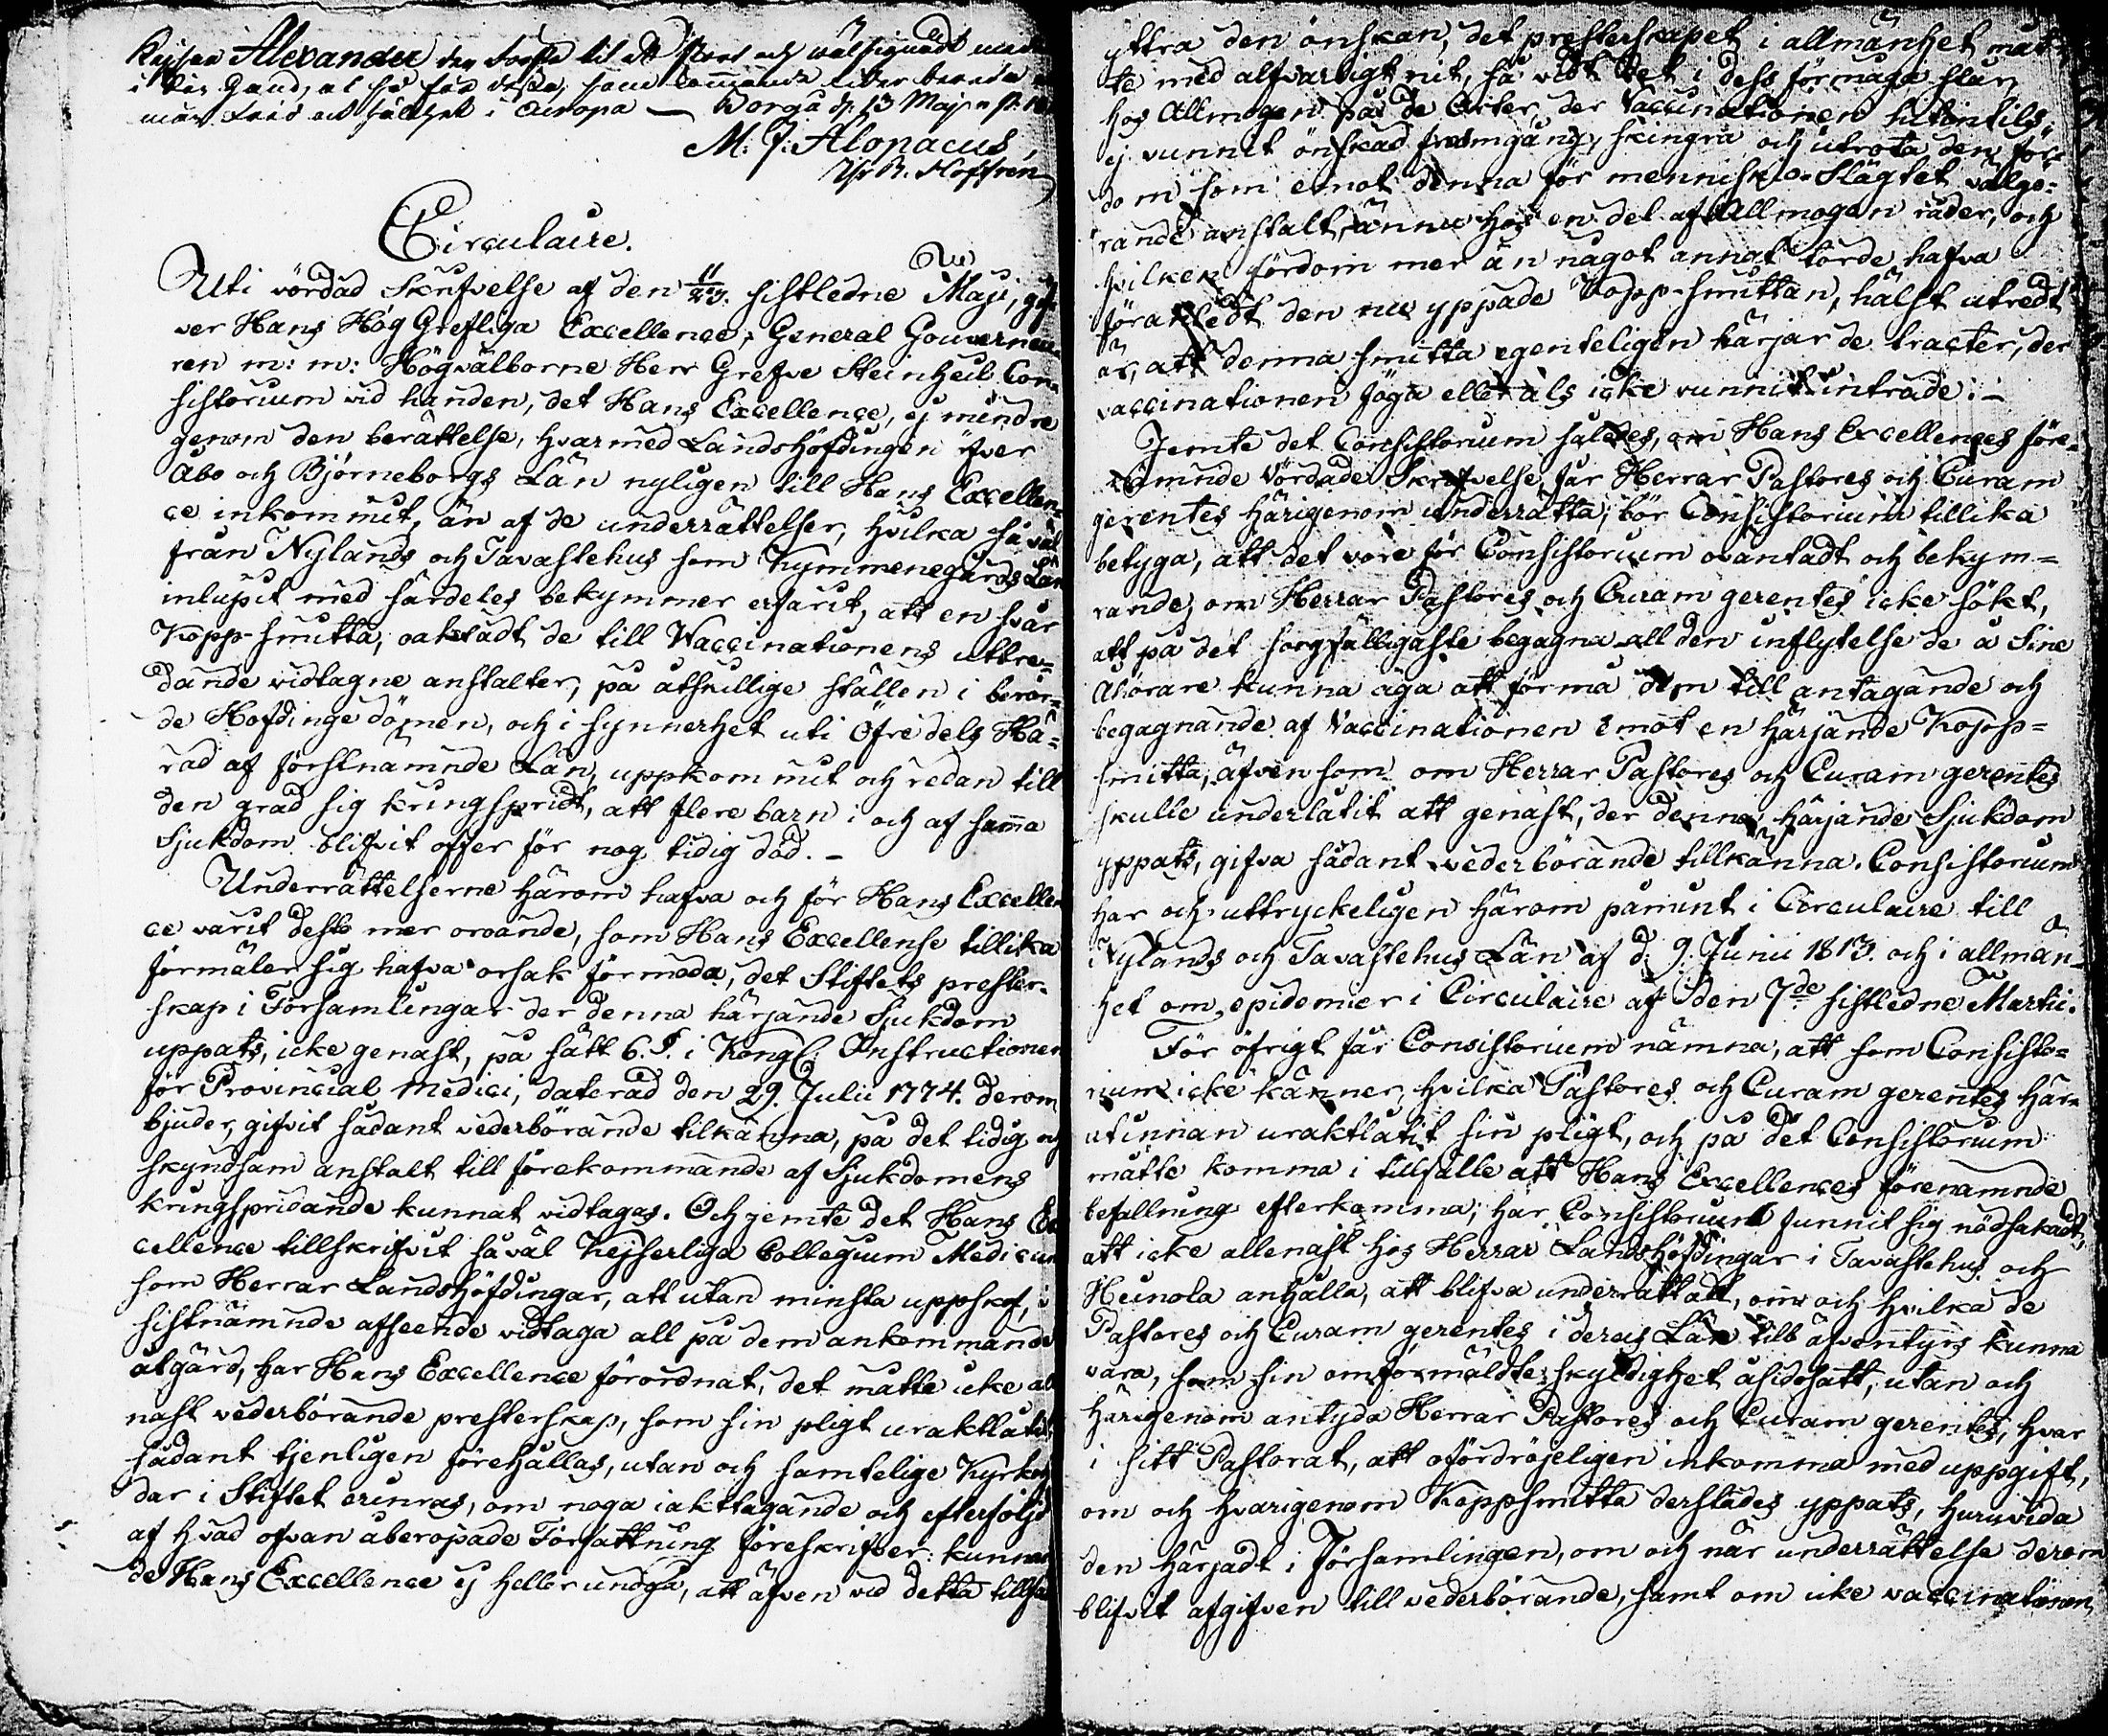 Kejsar Alexander den Första til et stort och välsignadt
i Din Hand, at så för dessa som kommande tider bereda
mäns Frid och sällhet i Europa — Borgå d. 13 Maji
M. J. Alopæus,
Circulaire.
Uti vördad Skrifvelse af den 11/23. sistledne Maji, gif-
ver Hans Hög Grefliga Excellence, General Gouverneu-
ren m: m: Högvälborne Herr Grefve Steinheil Con-
sistorium vid handen, det Hans Excellence, ej mindre
genom den berättelse, hvarmed Landshöfdingen öfver
Åbo och Björneborgs Län nyligen till Hans Excellen-
ce inkommit, än af de underrättelser, hvilka så väl
från Nylands och Tavastehus som Kymmenegårds Län
inlupit med särdeles bekymmer erfarit, att en svår
Kopp-smitta, oaktadt de till Vaccinationens utbre-
dande vidtagne anstalter, på åtskillige ställen i berör-
de Höfdinge dömen, och i synnerhet uti Öfre dels Hä-
rad af förstnämnde Län, uppkommit och redan till
den grad sig kringspridt, att flere barn i och af samma
Sjukdom blifvit offer för nog tidig död. –
Underrättelserne härom hafva och för Hans Excellen
ce varit desto mer oroande, som Hans Excellense tillika
förmäler sig hafva orsak förmoda, det Stiftets prester-
skap i Församlingar der denna härjande Sjukdom
uppats, icke genast, på sätt 6. §. i Kongl. Instructionen
för Provincial Medici, daterad den 29. Julii 1774. derom
bjuder, gifvit sådant vederbörande tilkänna, på det tidig och
skyndsam anstalt till förekommande af Sjukdomens
kringspridande kunnat vidtagas. Och jemte det Hans Ex
cellence tillskrifvit såväl Kejserliga Collegium Medicum
som Herrar Landshöfdingar, att utan minsta uppskof, i
sistnämnde afseende vidtaga all på dem ankommande
åtgärd, har Hans Excellence förordnat, det måtte icke al
nast vederbörande presterskap, som sin pligt uraktlåtit,
sådant tjenligen förehållas, utan och samtelige Kyrkoh
dar i Stiftet erinras, om noga iakttagande och efterfölje
af hvad ofvan åberopade Författning föreskrifver: kunnan
de Hans Excellence ej heller undgå, att äfven vid detta tillfäl
yttra den önskan, det presterskapet i allmänhet måt-
te med alfvarligt nit, så vidt det i dess förmåga står,
hos Allmogen på de Orter, der Vaccinationen hitintils
ej vunnit önskad framgång, skingra och utrota den för-
dom som emot denna för mennisko-Slägtet välgö-
rande anstalt, ännu hos en del af Allmogen råder, och
hvilken fördom mer än något annat torde hafva
föranledt den nu yppade Kopp-smittan, hälst utredt
är, att denna smitta egenteligen härjar de tracter, der
vaccinationen föga eller als icke vunnit inträde: –
Jemte det Consistorium således, om Hans Excellences före-
nämnde vördade Skrifvelse, får Herrar Pastores och Curam
gerentes härigenom underrätta; bör Consistorium tillika
betyga, att det vore för Consistorium oväntadt och bekym-
rande, om Herrar Pastores och Curam gerentes icke sökt,
att på det sorgfälligaste begagna all den inflytelse de å Sine
Åhörare kunna äga att förmå dem till antagande och
begagnande af Vaccinationen emot en härjande Kopp-
smitta, äfvensom om Herrar Pastores och Curam gerentes
skulle underlåtit att genast, der denna härjande Sjukdom
yppats, gifva sådant vederbörande tillkänna. Consistorium
har och uttryckeligen härom påmint i Circulaire till
Nylands och Tavastehus Län af d. 9. Junii 1813. och i allmän-
het om epidemier i Circulaire af den 7de sistledne Martii.
För öfrigt får Consistorium nämna, att som Consisto-
rium icke känner, hvilka Pastores och Curam gerentes här-
utinnan uraktlåtit sin pligt, och på det Consistorium
måtte komma i tillfälle att Hans Excellences förenämnde
befallning efterkomma; har Consistorium funnit sig nödsakadt,
att icke allenast hos Herrar Landshöfdingar i Tavastehus och
Heinola anhålla, att blifva underrättadt, om och hvilka de
Pastores och Curam gerentes i deras Län till äfventyrs kunna
vara, som sin omförmäldte skyldighet åsidosatt, utan och
härigenom antyda Herrar Pastores och Curam gerentes, hvar
i sitt Pastorat, att ofördröjeligen inkomma med uppgift,
om och hvarigenom Koppsmitta derstädes yppats, huruvida
den härjadt i Församlingen, om och när underrättelse derom
blifvit afgifven till vederbörande, samt om icke vaccinationen